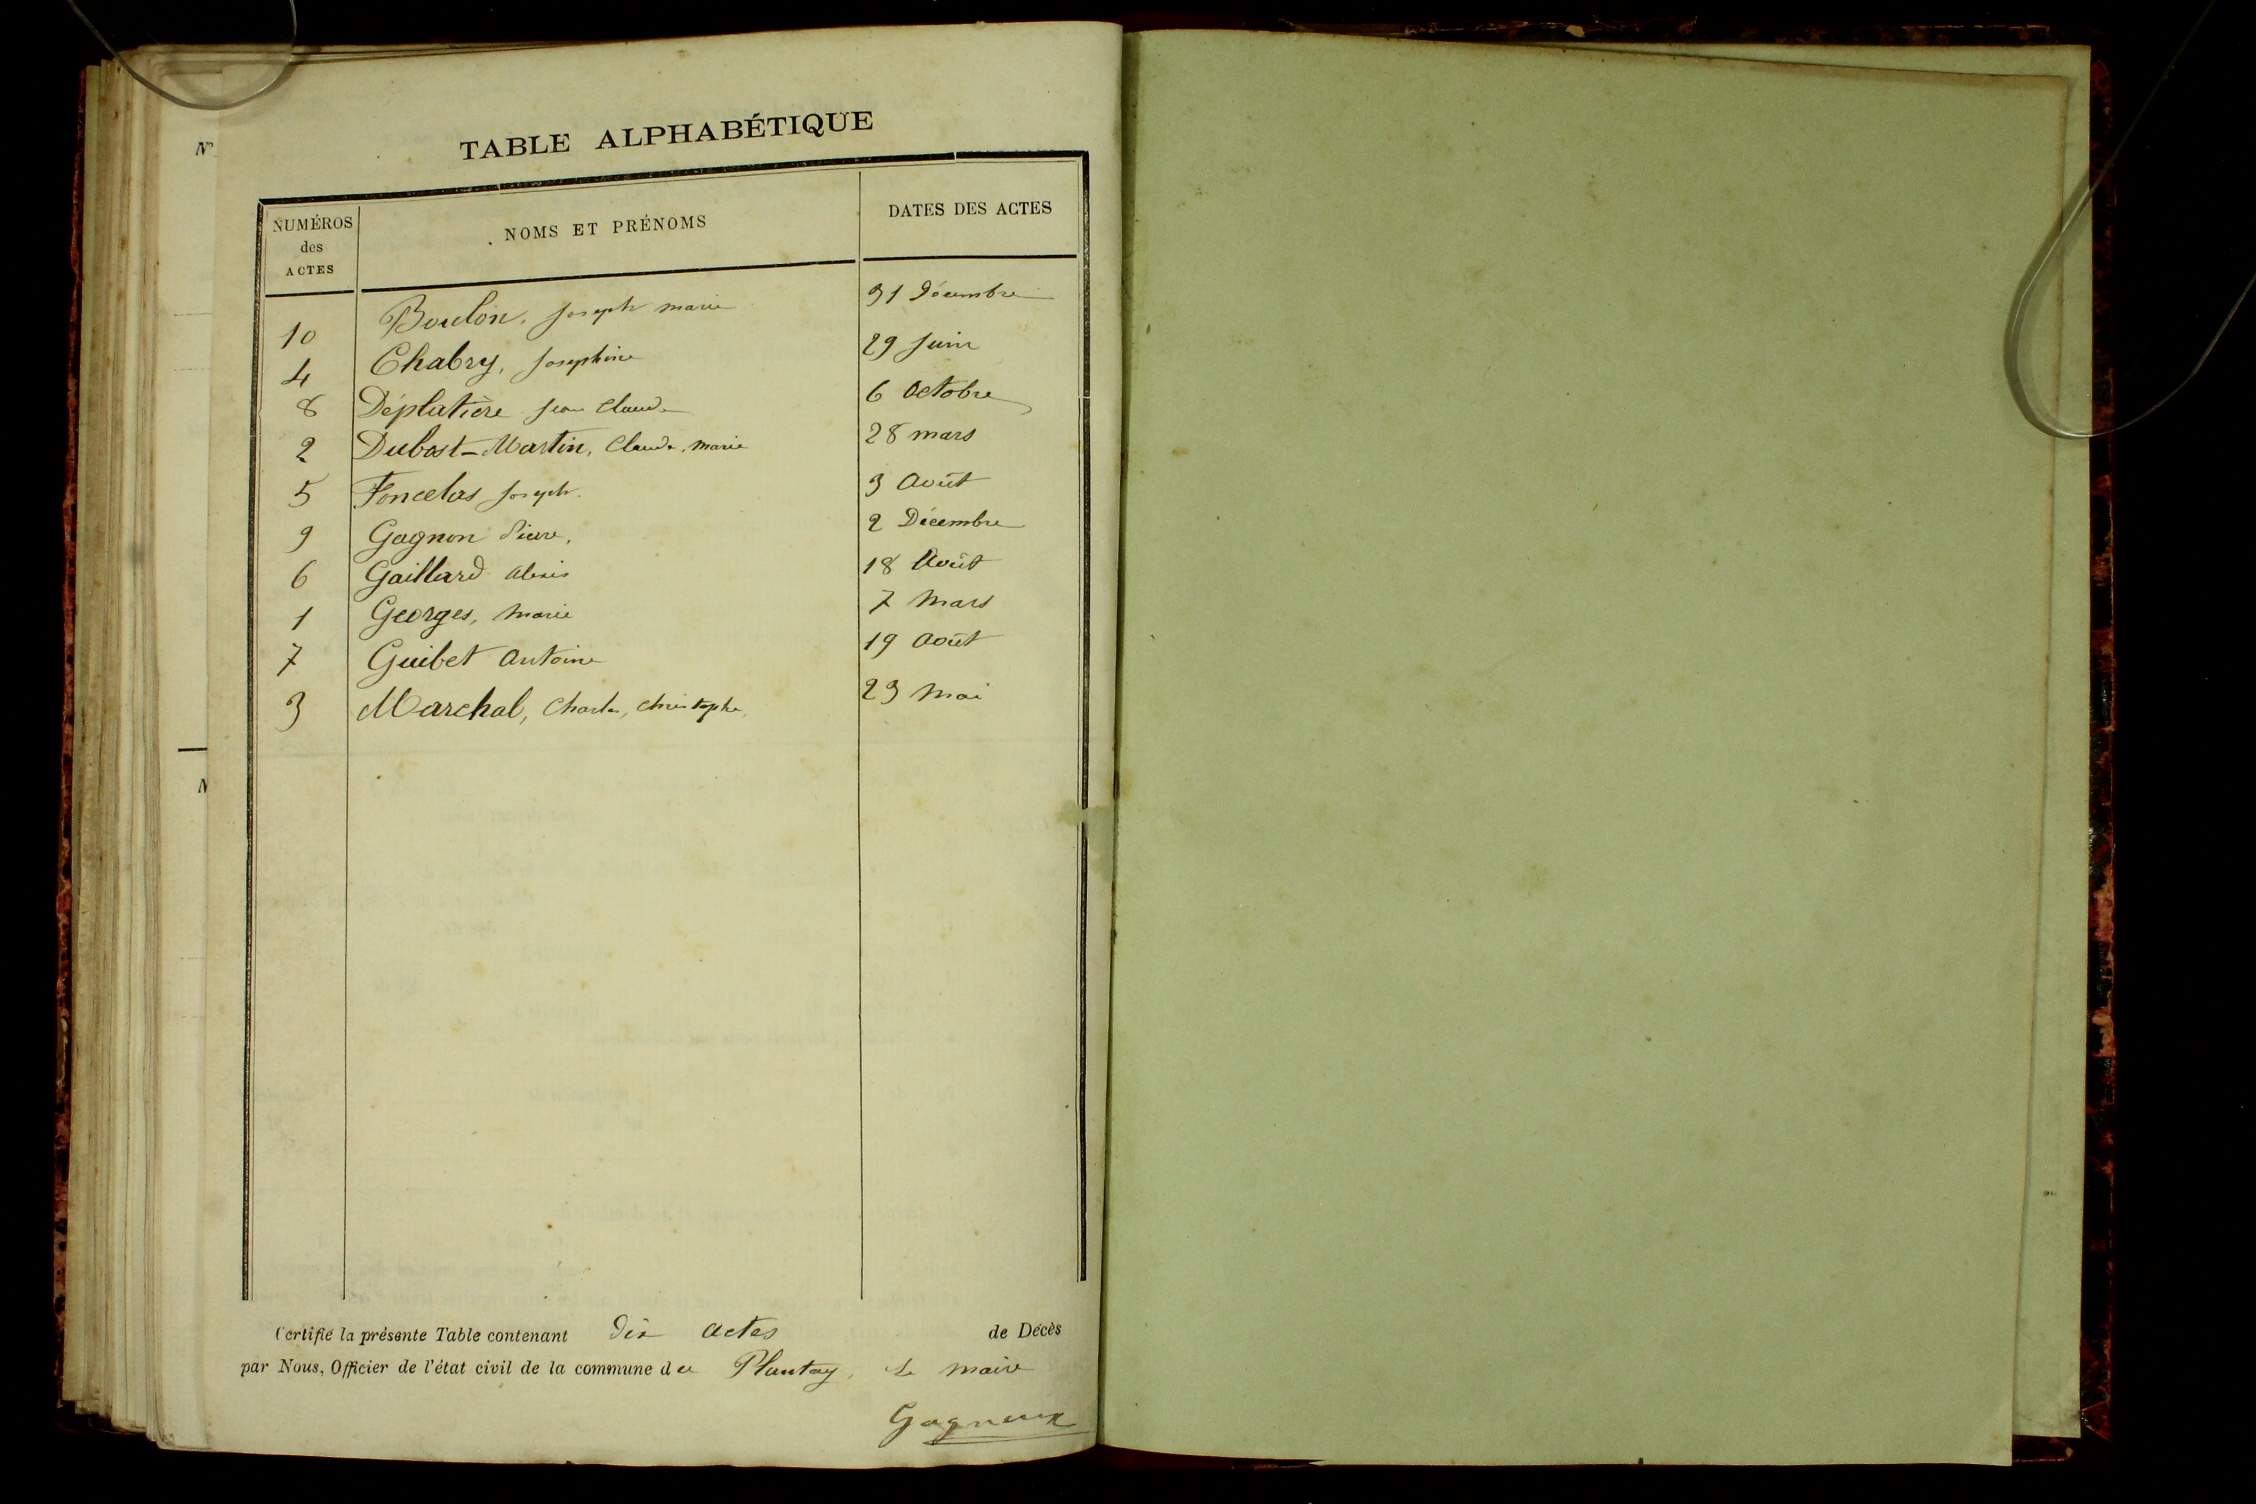 N°
TABLE ALPHABÉTIQUE
NUMÉROS des ACTES
NOMS ET PRÉNOMS
DATES DES ACTES
10 Boulon, Joseph marie 31 Décembre
4 Chabry, Joséphine 29 Juin
8 Déplatière Jean Claude 6 Octobre
2 Dubost-Martin, Claude, Marie 28 mars
5 Foncelas Joseph. 3 Août
9 Gagnon Pierre, 2 Décembre
6 Gaillard Alexis 18 Août
1 Georges, Marie 7 Mars
7 Guibet Antoine 19 Août
3 Marchal, Charles, Christophe, 23 Mai
Certifié la présente Table contenant dix actes de Décès
par Nous, Officier de l'état civil de la commune du Plantay, Le Maire
Gagneux